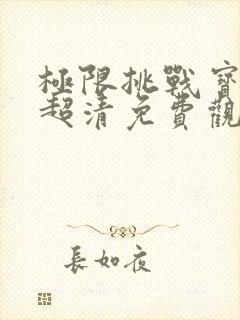 極限挑戰寶
超清免費觀
長如夜